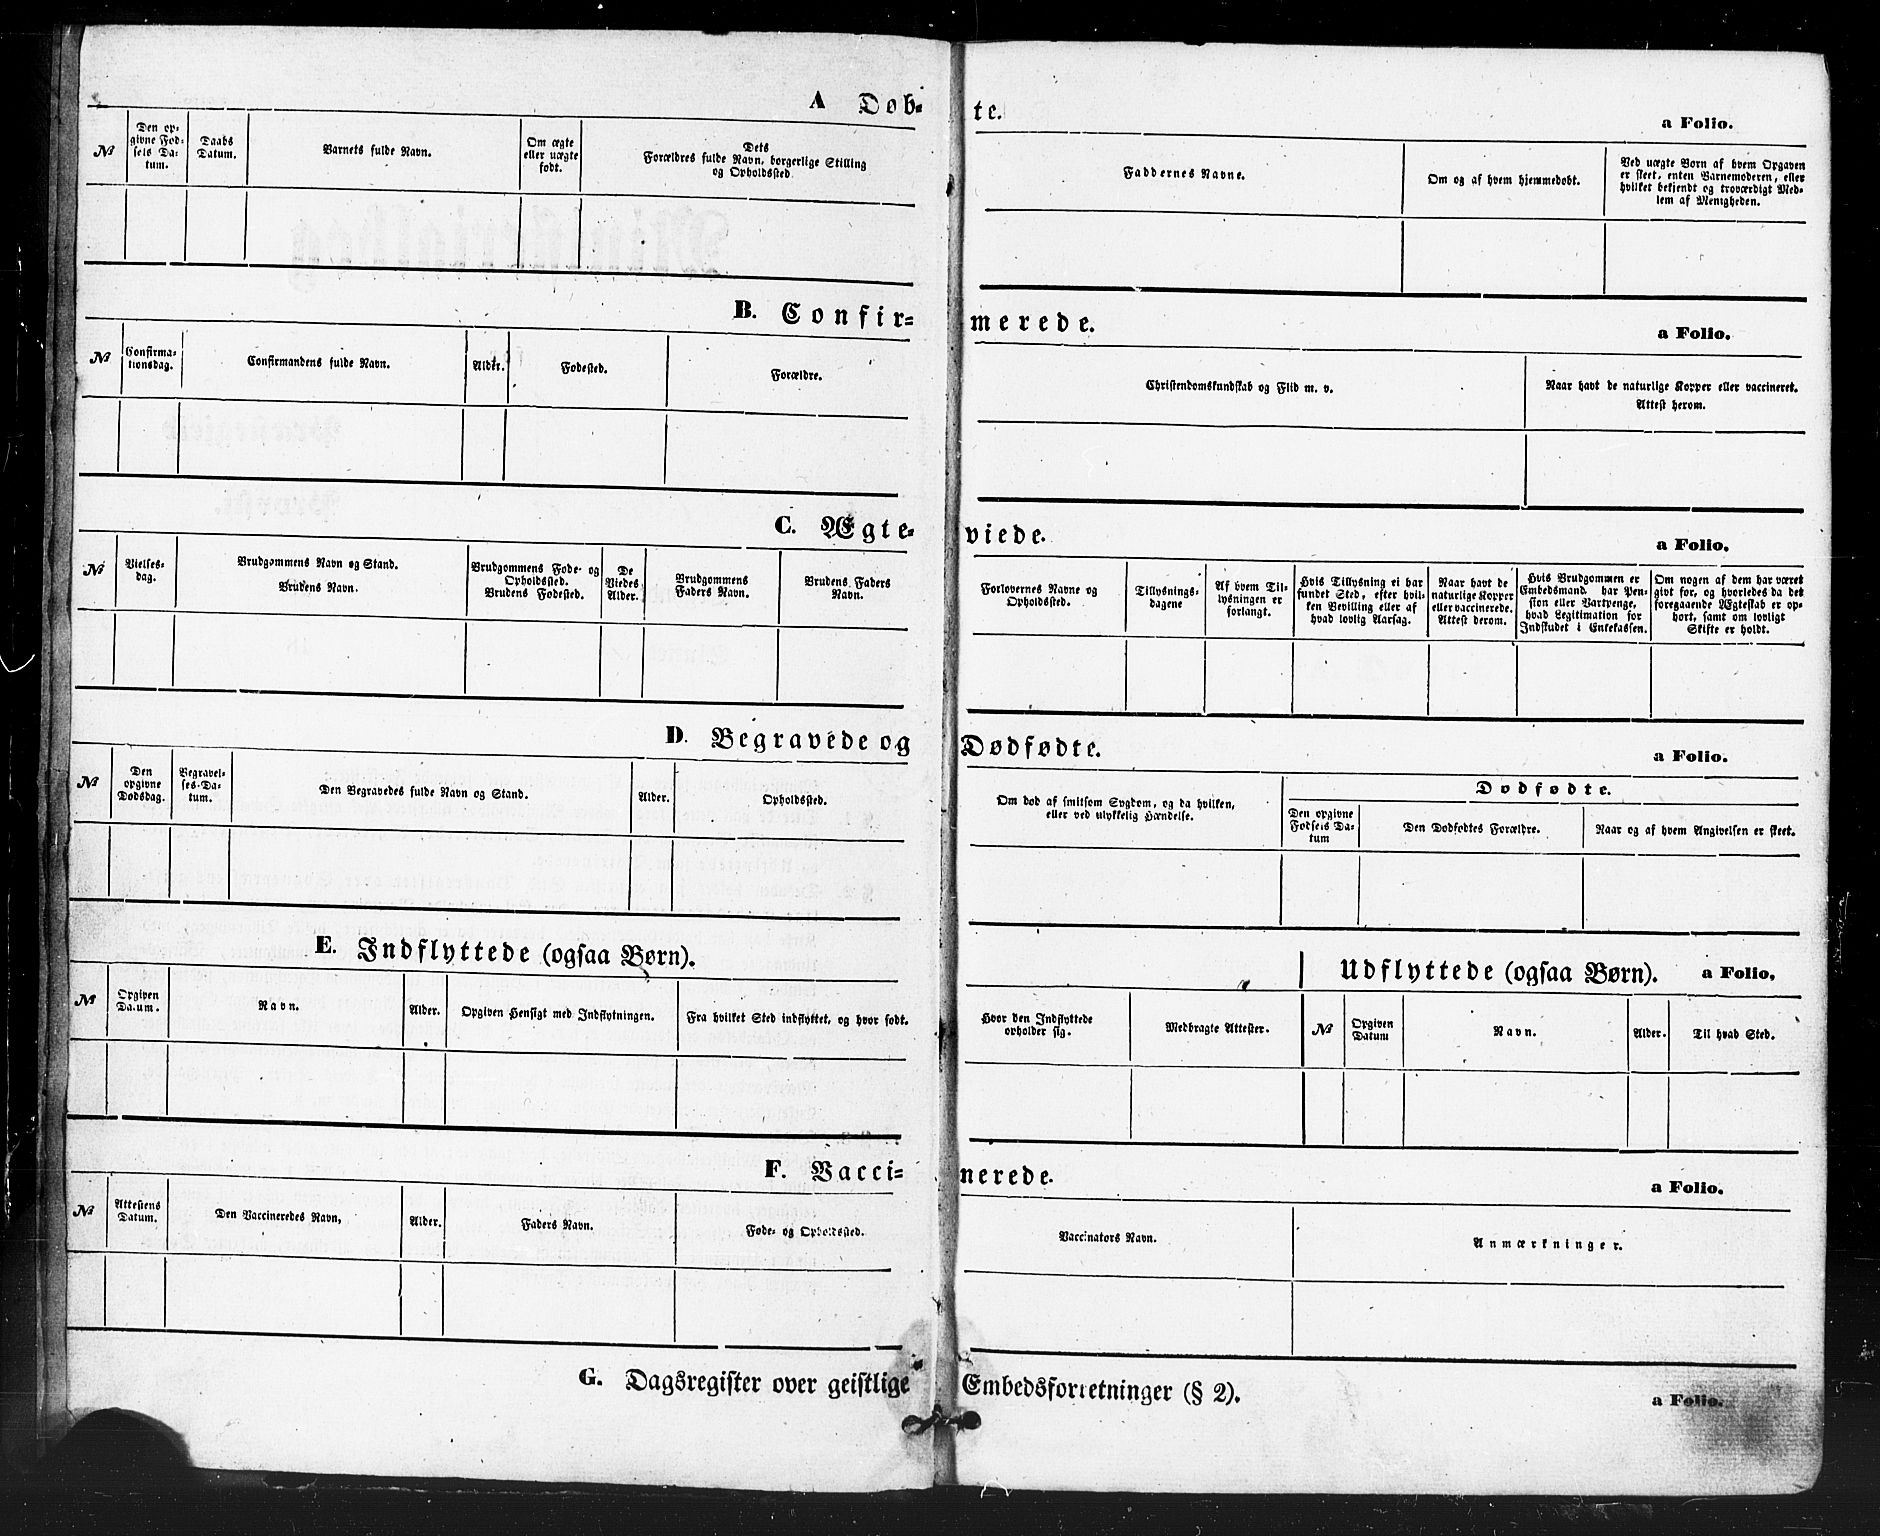 A Døb-
te.
a Folio.
№
Den op-
givne Fød-
sels Da-
tum.
Daabs
Datum.
Barnets fulde Navn.
Om ægte
eller uægte
født.
Dets
Forældres fulde Navn, borgerlige Stilling
og Opholdssted.
Faddernes Navne.
Om og af hvem hjemmedøbt.
Ved uægte Børn af hvem Opgaven
er skeet, enten Barnemoderen, eller
hvilket bekjendt og troværdigt Med-
lem af Menigheden.
B. Confir-
merede.
a Folio.
№
Confirma-
tionsdag.
Confirmandens fulde Navn.
Alder.
Fødested.
Forældre.
Christendomskundskab og Flid m. v.
Naar havt de naturlige Kopper eller vaccineret.
Attest herom.
C. Ægte-
viede.
a Folio.
№
Vielses-
dag.
Brudgommens Navn og Stand.
Brudens Navn.
Brudgommens Føde- og
Opholdssted.
Brudens Fødested.
De
Viedes
Alder.
Brudgommens
Faders Navn.
Brudens Faders
Navn.
Forlovernes Navne og
Opholdssted.
Tillysnings-
dagene
Af hvem Til-
lysningen er
forlangt.
Hvis Tillysning ei har
fundet Sted, efter hvil-
ken Bevilling eller af
hvad lovlig Aarsag.
Naar havt de
naturlige Kopper
eller vaccinerede.
Attest derom.
Hvis Brudgommen er
Embedsmand, har Pen-
sion eller Vartpenge,
hvad Legitimation for
Indskudet i Enkekassen.
Om nogen af dem har været
givt før, og hvorledes da det
foregaaende Ægteskab er op-
hørt, samt om lovligt
Skifte er holdt.
D. Begravede og
Dødfødte.
a Folio.
№
Den
opgivne
Dødsdag.
Begravel-
ses-Da-
tum.
Den Begravedes fulde Navn og Stand.
Alder.
Opholdssted.
Om død af smitsom Sygdom, og da hvilken,
eller ved ulykkelig Hændelse.
Dødfødte.
Den opgivne
Fødsels Da-
tum
Den Dødfødtes Forældre.
Naar og af hvem Angivelsen er skeet.
E. Indflyttede (ogsaa Børn).
Udflyttede (ogsaa Børn).
a Folio.
№
Opgiven
Datum.
Navn.
Alder.
Opgiven Hensigt med Indflytningen.
Fra hvilket Sted indflyttet, og hvor født.
Hvor den Indflyttede
opholder sig.
Medbragte Attester.
№
Opgiven
Datum
Navn.
Alder.
Til hvad Sted.
F. Vacci-
nerede.
a Folio.
№
Attestens
Datum.
Den Vaccineredes Navn,
Alder.
Faders Navn.
Føde- og Opholdssted.
Vaccinators Navn.
Anmærkninger.
G. Dagsregister over geistlige
Embedsforretninger (§ 2).
a Folio.